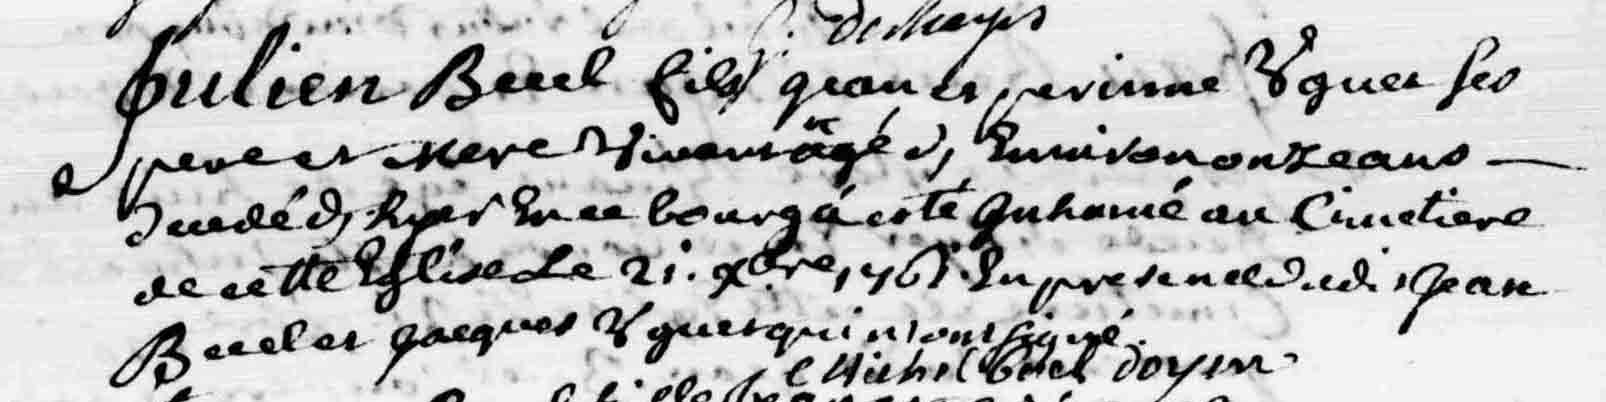 deshays
Julien Buel fils jean et perinne Uguet ses
pere et mere Vivants âgé d Environ onze ans
decedé d hyer En ce bourg á esté Inhumé au Cimetiere
de cette Eglise Le 21. xbre 1761 En presence dudit Jean
Buel et jacques Uguet qui n'ont signé.
Michel Buel doyen